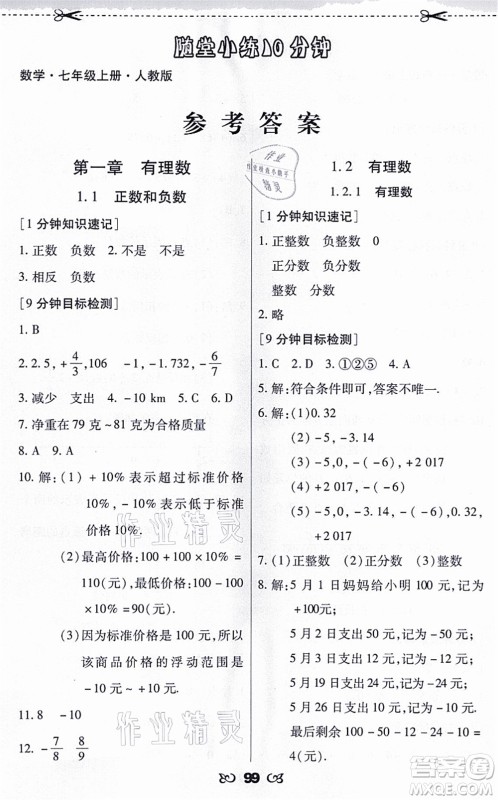 随堂小练10分钟
数学·七年级上册·人教版
参考答案
第一章 有理数
1.1 正数和负数
[1分钟知识速记]
1. 正数 负数 2. 不是 不是
3. 相反 负数
[9分钟目标检测]
1. B
2. 2.5, +4/3, 106 -1, -1.732, -6/7
3. 减少 支出 4. -10 km 5. C 6. D
7. 净重在79克~81克为合格质量
8. A 9. A
10. 解:(1)+10%表示超过标准价格
10%,-10%表示低于标准价格
10%.
(2)最高价格:100+100×10%=
110(元),最低价格:100-100×
10%=90(元).
(3)因为标准价格是100元,所以
该商品价格的浮动范围是
-10元~+10元.
11. 8 -10
12. -7/8 8/9
1.2 有理数
1.2.1 有理数
[1分钟知识速记]
1. 正整数 负整数 0
正分数 负分数
整数 分数
2. 略
[9分钟目标检测]
1. C 2. D 3. ①②⑤ 4. A
5. 解:符合条件即可,答案不唯一.
6. 解:(1)0.32
(2)-5,-3.14
(3)-5,-(-6),+2 017
(4)0.32,0,-(-6),
+2 017
7. (1)正整数 (2)正分数 (3)整数
8. 解:5月1日妈妈给小明100元,记为
+100元;
5月2日支出50元,记为-50元;
5月12日支出10元,记为-10元;
5月19日支出24元,记为-24元;
5月26日支出12元,记为-12元.
作业精灵
作业精灵
99